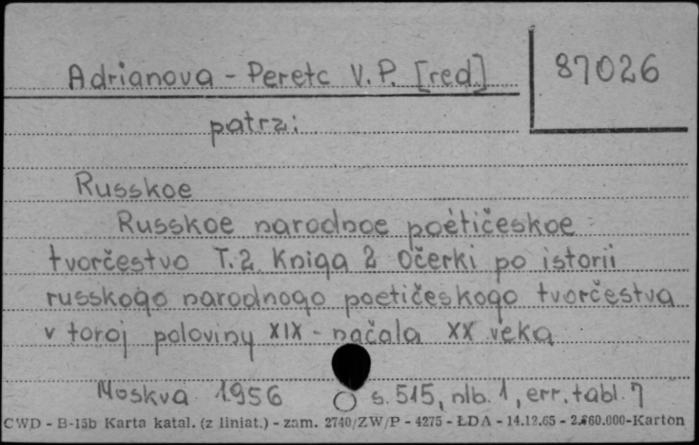 Adrianova - Peretc V. P. [red] 87026
patrz:
Russkoe
Russkoe narodnoe poėtičeskoe
tvorčestvo T. 2 Kniga 2 Očerki po istorii
russkogo narodnogo poetičeskogo tvorčestva
v toroj poloviny XIX - načala XX veka
Moskva 1956 s. 515, nlb. 1, err. tabl. 7
CWD - B-15b Karta katal. (z liniat.) - zam. 2740/ZW/P - 4275 - ŁDA - 14.12.65 - 2.860.000-Karton